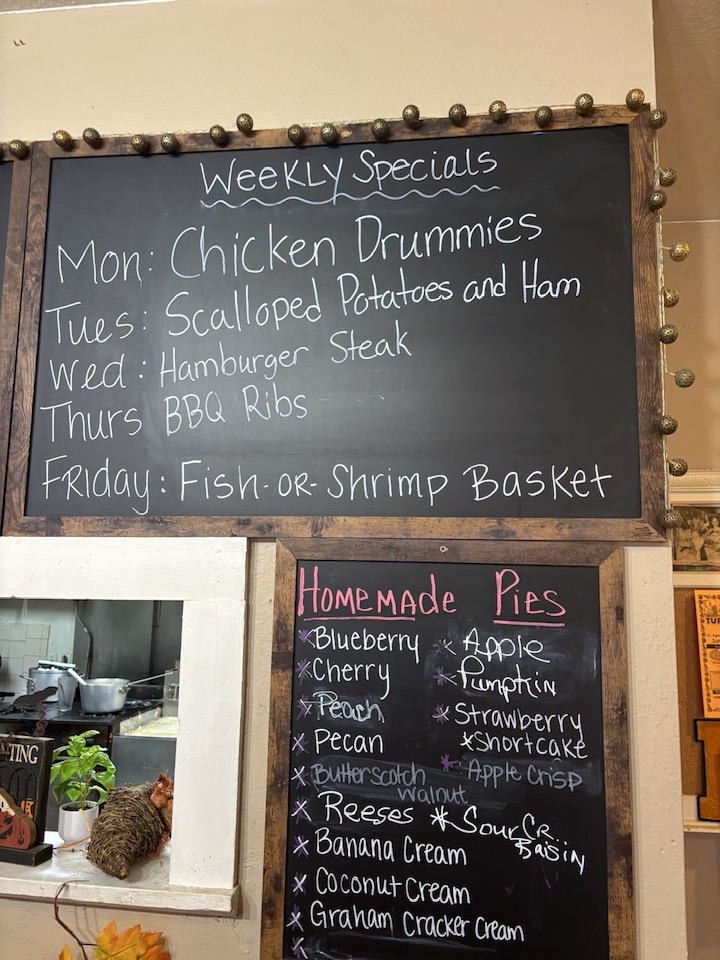 Weekly Specials
Mon: Chicken Drummies
Tues: Scalloped Potatoes and Ham
Wed: Hamburger Steak
Thurs BBQ Ribs
Friday: Fish-or-Shrimp Basket
Homemade Pies
*Blueberry
*Cherry
*Peach
*Pecan
*Butterscotch
Walnut
*Reeses
*Banana Cream
*Coconut Cream
*Graham Cracker Cream
*
*Apple
*Pumpkin
*Strawberry
*Shortcake
*Apple Crisp
*Sour Cr.
Raisin
TING